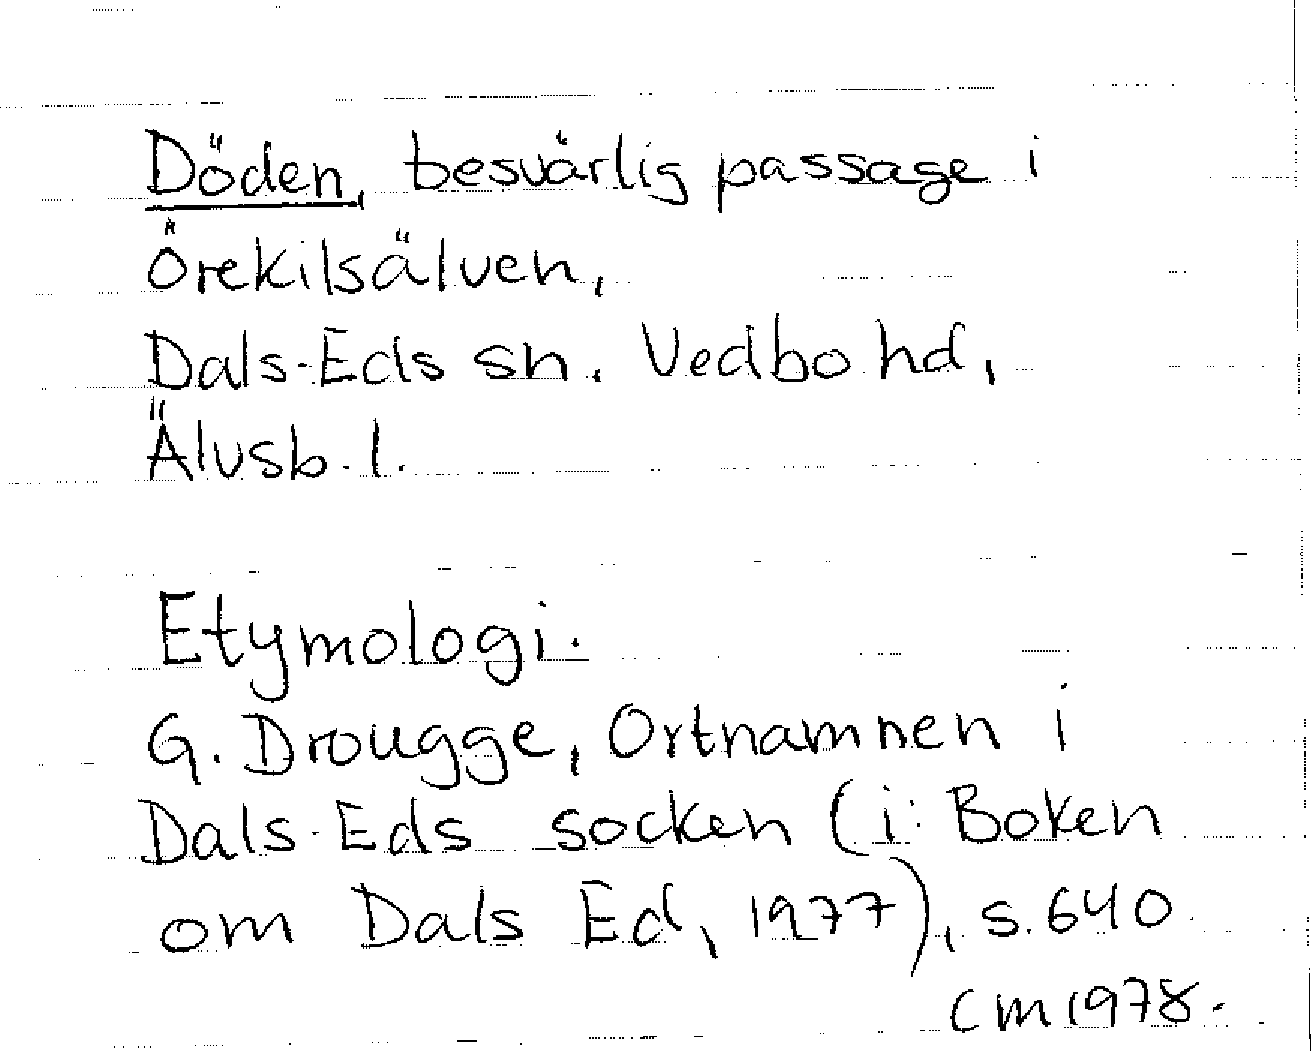 Döden, besvärlig passage i
Örekilsälven,
Dals-Eds sn. Vedbo hd,
Älvsb. l.
Etymologi.
G. Drougge, Ortnamnen i
Dals-Eds socken (i: Boken
om Dals Ed, 1977), s. 640
CM 1978.